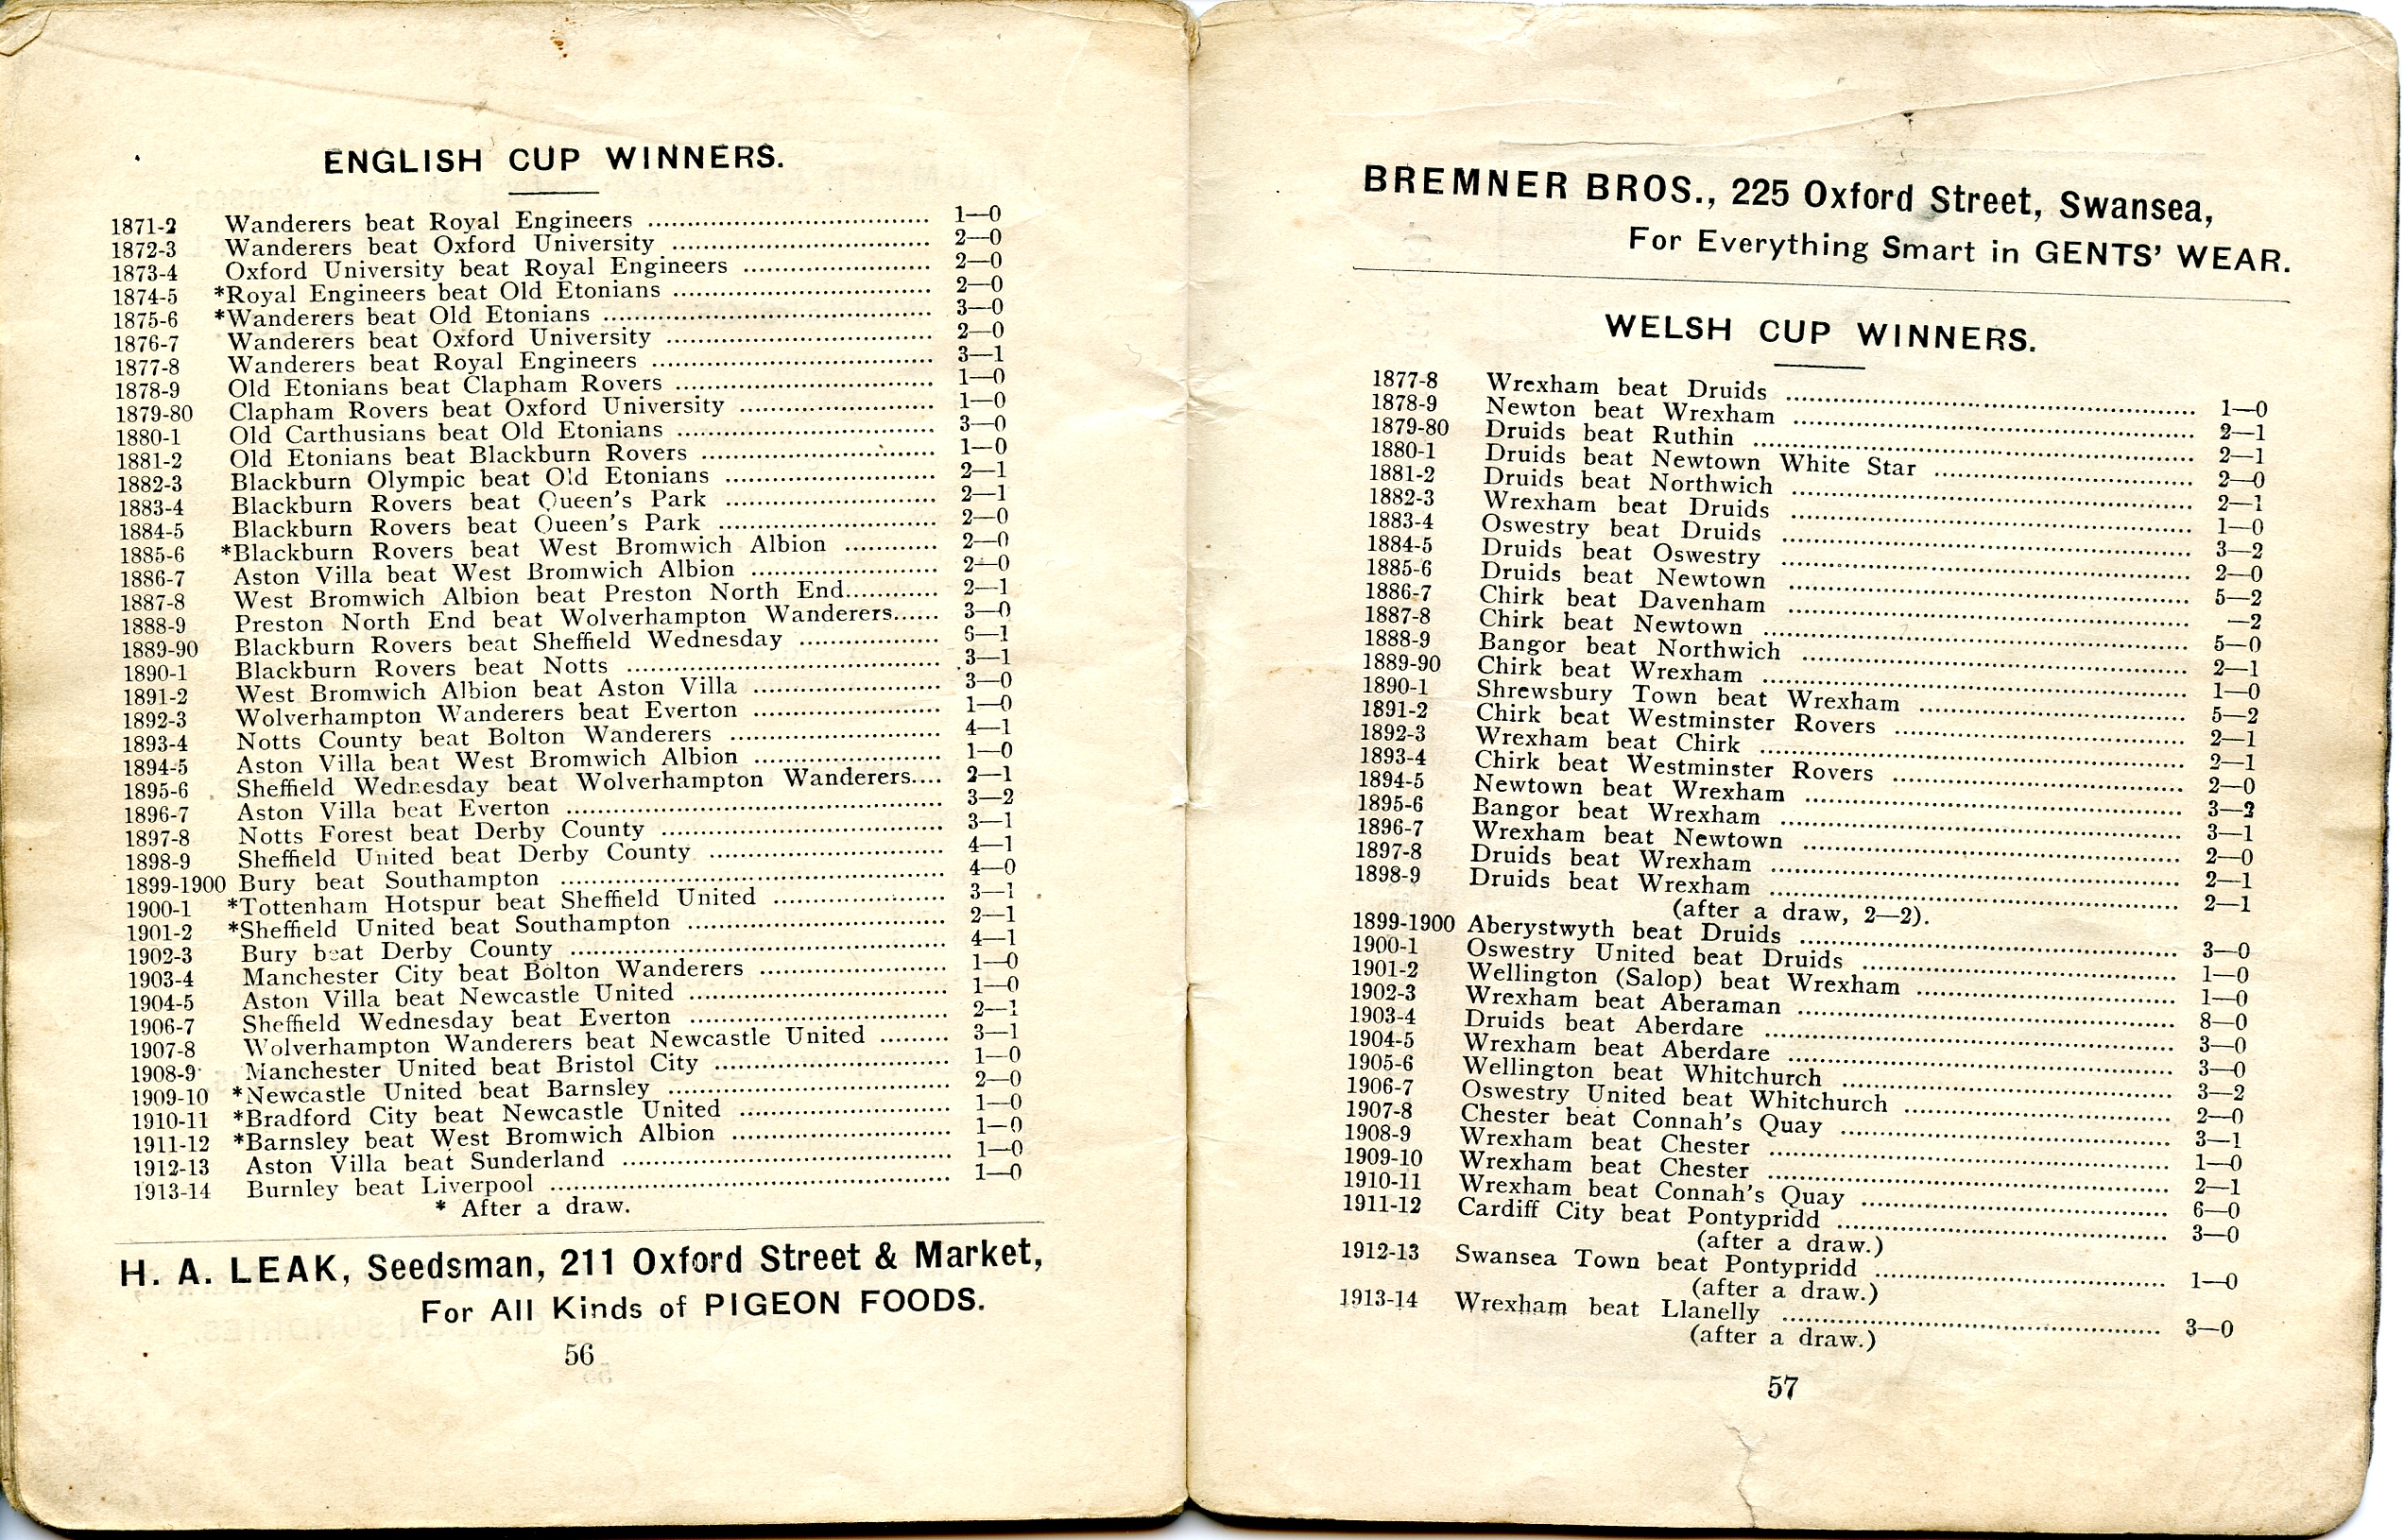 ENGLISH CUP WINNERS.
1871-2 Wanderers beat Royal Engineers ................................ 1—0
1872-3 Wanderers beat Oxford University ............................. 2—0
1873-4 Oxford University beat Royal Engineers ..................... 2—0
1874-5 *Royal Engineers beat Old Etonians ............................. 2—0
1875-6 *Wanderers beat Old Etonians ..................................... 3—0
1876-7 Wanderers beat Oxford University .............................. 2—0
1877-8 Wanderers beat Royal Engineers ................................ 3—1
1878-9 Old Etonians beat Clapham Rovers ............................. 1—0
1879-80 Clapham Rovers beat Oxford University ...................... 1—0
1880-1 Old Carthusians beat Old Etonians ............................. 3—0
1881-2 Old Etonians beat Blackburn Rovers .......................... 1—0
1882-3 Blackburn Olympic beat Old Etonians ........................ 2—1
1883-4 Blackburn Rovers beat Queen's Park ........................ 2—1
1884-5 Blackburn Rovers beat Queen's Park ......................... 2—0
1885-6 *Blackburn Rovers beat West Bromwich Albion ............ 2—0
1886-7 Aston Villa beat West Bromwich Albion ..................... 2—0
1887-8 West Bromwich Albion beat Preston North End............ 2—1
1888-9 Preston North End beat Wolverhampton Wanderers...... 3—0
1889-90 Blackburn Rovers beat Sheffield Wednesday ................ 6—1
1890-1 Blackburn Rovers beat Notts .................................... 3—1
1891-2 West Bromwich Albion beat Aston Villa ..................... 3—0
1892-3 Wolverhampton Wanderers beat Everton ..................... 1—0
1893-4 Notts County beat Bolton Wanderers ........................ 4—1
1894-5 Aston Villa beat West Bromwich Albion ..................... 1—0
1895-6 Sheffield Wednesday beat Wolverhampton Wanderers.... 2—1
1896-7 Aston Villa beat Everton .......................................... 3—2
1897-8 Notts Forest beat Derby County ................................ 3—1
1898-9 Sheffield United beat Derby County ........................... 4—1
1899-1900 Bury beat Southampton ........................................... 4—0
1900-1 *Tottenham Hotspur beat Sheffield United ................... 3—1
1901-2 *Sheffield United beat Southampton ............................. 2—1
1902-3 Bury beat Derby County .......................................... 4—1
1903-4 Manchester City beat Bolton Wanderers ..................... 1—0
1904-5 Aston Villa beat Newcastle United ............................. 1—0
1906-7 Sheffield Wednesday beat Everton ............................. 2—1
1907-8 Wolverhampton Wanderers beat Newcastle United ......... 3—1
1908-9 Manchester United beat Bristol City .......................... 1—0
1909-10 *Newcastle United beat Barnsley ................................ 2—0
1910-11 *Bradford City beat Newcastle United ........................ 1—0
1911-12 *Barnsley beat West Bromwich Albion ......................... 1—0
1912-13 Aston Villa beat Sunderland ..................................... 1—0
1913-14 Burnley beat Liverpool ............................................. 1—0
* After a draw.
H. A. LEAK, Seedsman, 211 Oxford Street & Market,
For All Kinds of PIGEON FOODS.
56
BREMNER BROS., 225 Oxford Street, Swansea,
For Everything Smart in GENTS' WEAR.
WELSH CUP WINNERS.
1877-8 Wrexham beat Druids ................................................ 1—0
1878-9 Newton beat Wrexham ............................................... 2—1
1879-80 Druids beat Ruthin .................................................... 2—1
1880-1 Druids beat Newtown White Star ............................... 2—0
1881-2 Druids beat Northwich ............................................... 2—1
1882-3 Wrexham beat Druids ................................................ 1—0
1883-4 Oswestry beat Druids ................................................ 3—2
1884-5 Druids beat Oswestry ................................................ 2—0
1885-6 Druids beat Newtown ................................................ 5—2
1886-7 Chirk beat Davenham ................................................ —2
1887-8 Chirk beat Newtown .................................................. 5—0
1888-9 Bangor beat Northwich .............................................. 2—1
1889-90 Chirk beat Wrexham .................................................. 1—0
1890-1 Shrewsbury Town beat Wrexham ................................ 5—2
1891-2 Chirk beat Westminster Rovers ................................... 2—1
1892-3 Wrexham beat Chirk .................................................. 2—1
1893-4 Chirk beat Westminster Rovers ................................... 2—0
1894-5 Newtown beat Wrexham ............................................. 3—2
1895-6 Bangor beat Wrexham ................................................ 3—1
1896-7 Wrexham beat Newtown ............................................. 2—0
1897-8 Druids beat Wrexham ................................................ 2—1
1898-9 Druids beat Wrexham ................................................ 2—1
(after a draw, 2—2).
1899-1900 Aberystwyth beat Druids ............................................ 3—0
1900-1 Oswestry United beat Druids ..................................... 1—0
1901-2 Wellington (Salop) beat Wrexham ............................... 1—0
1902-3 Wrexham beat Aberaman ............................................ 8—0
1903-4 Druids beat Aberdare ................................................ 3—0
1904-5 Wrexham beat Aberdare ............................................. 3—0
1905-6 Wellington beat Whitchurch ....................................... 3—2
1906-7 Oswestry United beat Whitchurch ............................... 2—0
1907-8 Chester beat Connah's Quay ....................................... 3—1
1908-9 Wrexham beat Chester ............................................... 1—0
1909-10 Wrexham beat Chester ............................................... 2—1
1910-11 Wrexham beat Connah's Quay ..................................... 6—0
1911-12 Cardiff City beat Pontypridd ........................................ 3—0
(after a draw.)
1912-13 Swansea Town beat Pontypridd ................................... 1—0
(after a draw.)
1913-14 Wrexham beat Llanelly ............................................... 3—0
(after a draw.)
57